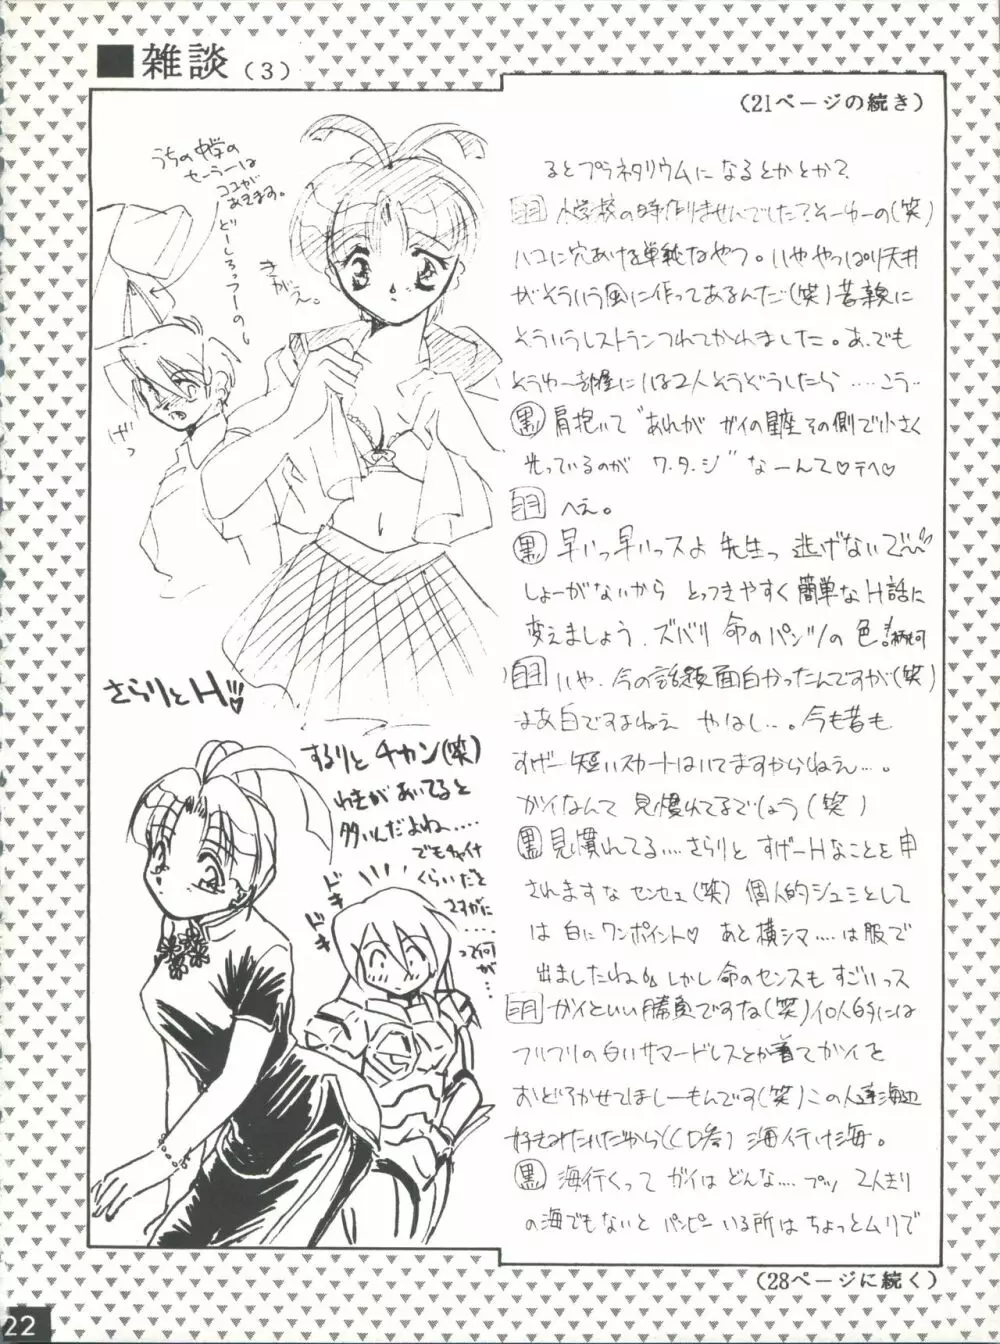 ■雑談(3)
(21ページの続き)
るとプラネタリウムになるとかとか?
羽 小学校の時作りませんでした?そーゆーの(笑)
ハコに穴あける単純なやつ。いややっぱり天井
がそういう風に作ってあるんだ(笑)昔親に
そういうレストランつれてかれました。あ、でも
そうゆー部屋にいる2人そうぞうしたら……こう…
黒 肩抱いて“あれが ガイの星座その側で小さく
光っているのが ワ・タ・シ”なーんて♡テヘ♡
羽 へえ。
黒 早いっ早いっスよ 先生っ 逃げないで〜
しょーがないから とっつきやすく簡単なH話に
変えましょう、ズバリ 命のパンツの色!
羽 いや、今の話題面白かったんですが(笑)
まあ白ですよねえ やはし…。今も昔も
すげー短いスカートはいてますからねえ…。
ガイなんて 見慣れてるでしょう(笑)
黒 見慣れてる……さらりと すげーHなことを申
されますな センセェ(笑)個人的シュミとして
は 白にワンポイント♡ あと横シマ……は服で
出ましたね しかし命のセンスも すごいっス
羽 ガイといい勝負ですな(笑)個人的には
フリフリの白いサマードレスとか着てガイを
おどろかせてほしーもんです(笑)この人達海辺
好きみたいだから(CD参)海行け海。
黒 海行くって ガイはどんな……プッ 2人きり
の海でもないと パンピーいる所はちょっとムリで
(28ページに続く)
うちの中学の
セーラーは
ココが
あきます。
どーしろっつーの
きがえ。
げっ
さらりとH♡
するりと チカン(笑)
わきがあいてると
多いんだよね……
でもチャイナ
くらいだと
さすがに
……
って何
が…
ドキ
ドキ
22